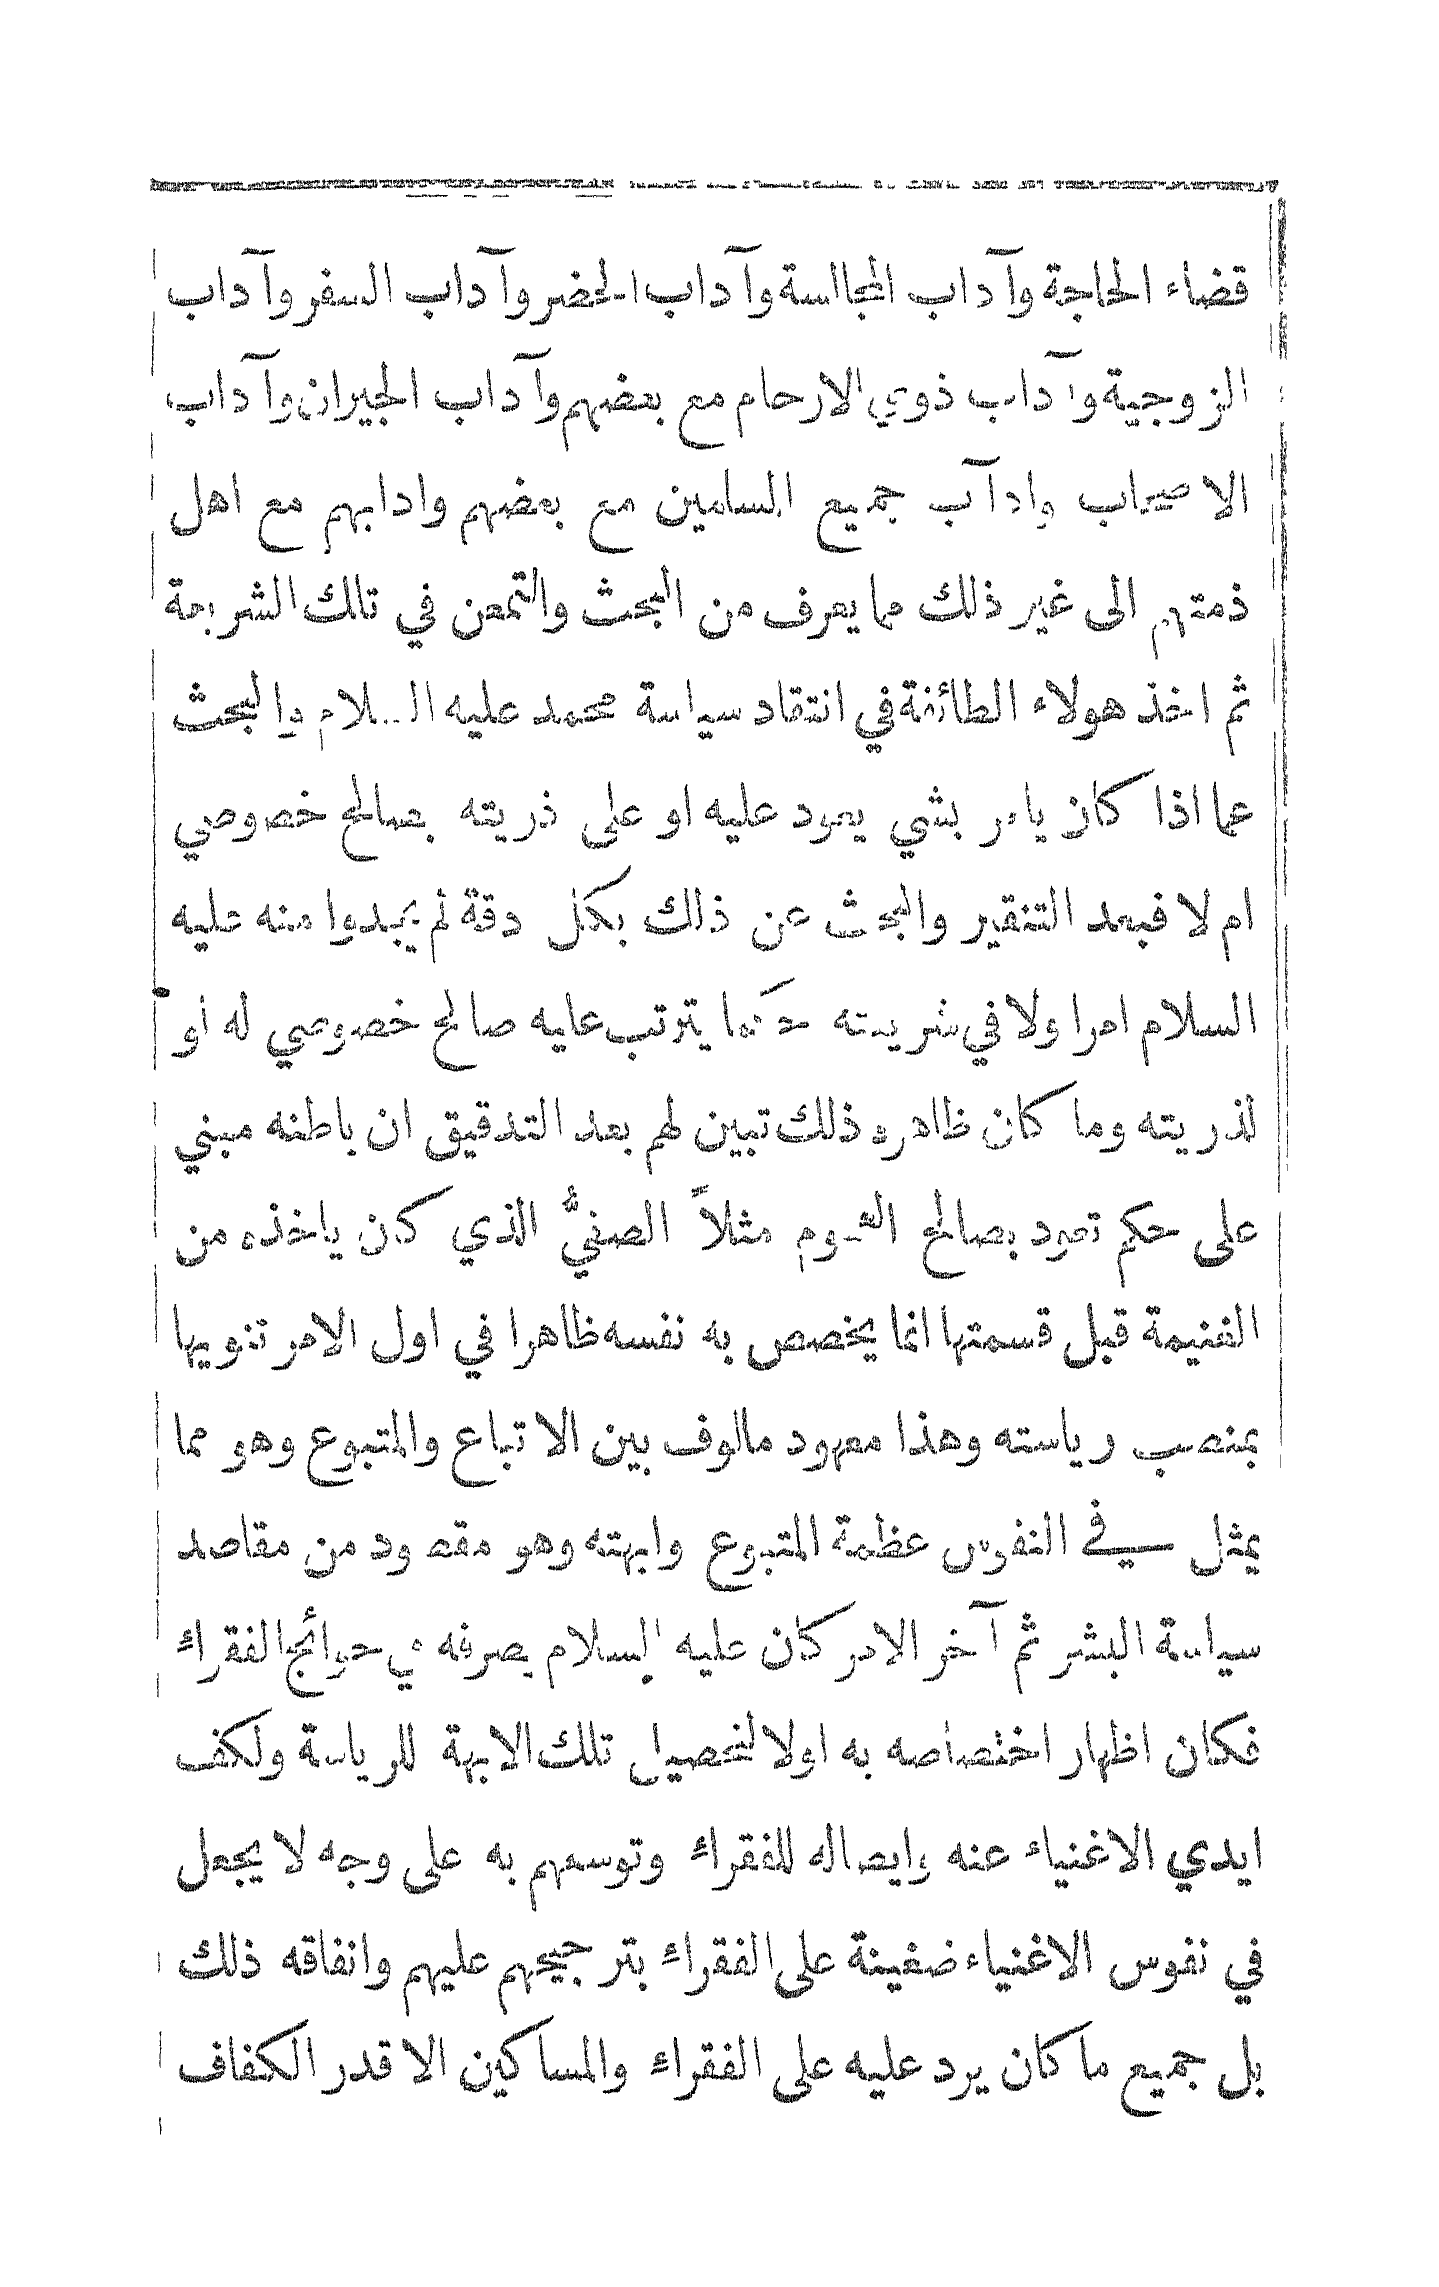 قضاء الحاجة وآداب المجالسة وآداب الحضر وآداب السفر وآداب
الزوجية وآداب ذوي الارحام مع بعضهم وآداب الجيران وآداب
الاصحاب وادآب جميع المسلمين مع بعضهم وادابهم مع اهل
ذمتهم الى غير ذلك مما يعرف من البحث والتمعن في تلك الشريعة
ثم اخذ هولاء الطائفة في انتقاد سياسة محمد عليه السلام والبحث
عما اذا كان يامر بشي يعود عليه او على ذريته بصالح خصوصي
ام لا فبعد التنقير والبحث عن ذلك بكل دقة لم يجدوا منه عليه
السلام امرا ولا في شريعته حكما يترتب عليه صالح خصوصي له أو
لذريته وما كان ظاهره ذلك تبين لهم بعد التدقيق ان باطنه مبني
على حكم تعود بصالح القوم مثلاً الصفيُّ الذي كان ياخذه من
الغنيمة قبل قسمتها انما يخصص به نفسه ظاهرا في اول الامر تنويها
بمنصب رياسته وهذا معهود مالوف بين الاتباع والمتبوع وهو مما
يمثل في النفوس عظمة المتبوع وابهته وهو مقصود من مقاصد
سياسة البشر ثم آخر الامر كان عليه السلام يصرفه في حوائج الفقراء
فكان اظهار اختصاصه به اولا لتحصيل تلك الابهة للرياسة ولكف
ايدي الاغنياء عنه وايصاله للفقراء وتوسعهم به على وجه لا يجعل
في نفوس الاغنياء ضغينة على الفقراء بترجيحهم عليهم وانفاقه ذلك
بل جميع ما كان يرد عليه على الفقراء والمساكين الا قدر الكفاف